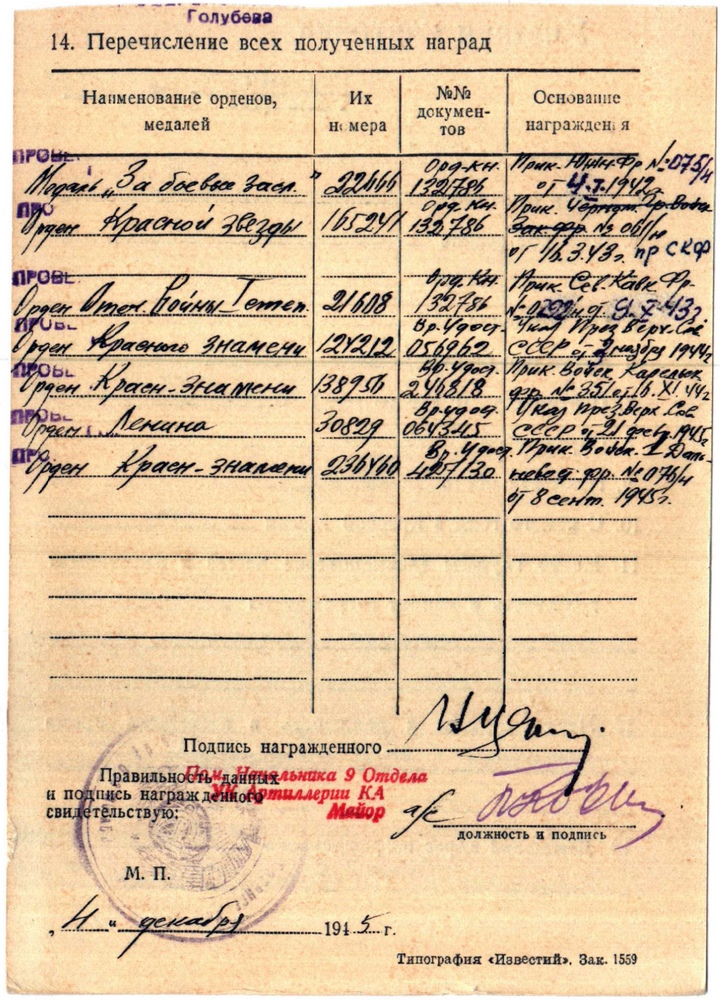 Голубева
14. Перечисление всех полученных наград
Наименование орденов, медалей
Их номера
№№ документов
Основание награждения
ПРОВЕ.
Медаль „За боевые засл." 22666 Орд.кн. 132786 Прик. Южн.Фр №075/н
от 4.I.1942г.
ПРО
Орден Красной звезды 165241 Орд.Кн. 132786 Прик. Черном. Гр. Войск
Зак.фр. № 061/н
от 16.3.43г. пр СКФ
ПРОВЕ.
Орден Отеч. Войны I степ. 21608 Орд.Кн. 132786 Прик. Сев.Кавк. Фр.
от 9.X.43г
ПРОВЕ
Орден Красного знамени 124212 Вр.Удост. 056962 Указ През. Верх. Сов
СССР от 2 ноября 1944г
ПРОВЕ
Орден Красн-знамени 138956 Вр.Удост. 246818 Прик. Войск. Карельск
фр. № 351 от 16.XI.44г
ПРОВЕ
Орден Ленина 30829 Вр.Удост. 064345 Указ През.Верх. Сов
СССР от 21 февр. 1945г
ПРО
Орден Красн-знамени 236460 Вр.Удост. 497130 Прик. Войск. 1 Даль-
невост. фр. № 076/н
от 8 сент. 1945г.
Подпись награжденного
Правильность данных
и подпись награжденного
свидетельствую:
Пом. Начальника 9 Отдела
УК Артиллерии КА
Майор
должность и подпись
М. П.
„4" декабря 1945 г.
Типография «Известий». Зак. 1559